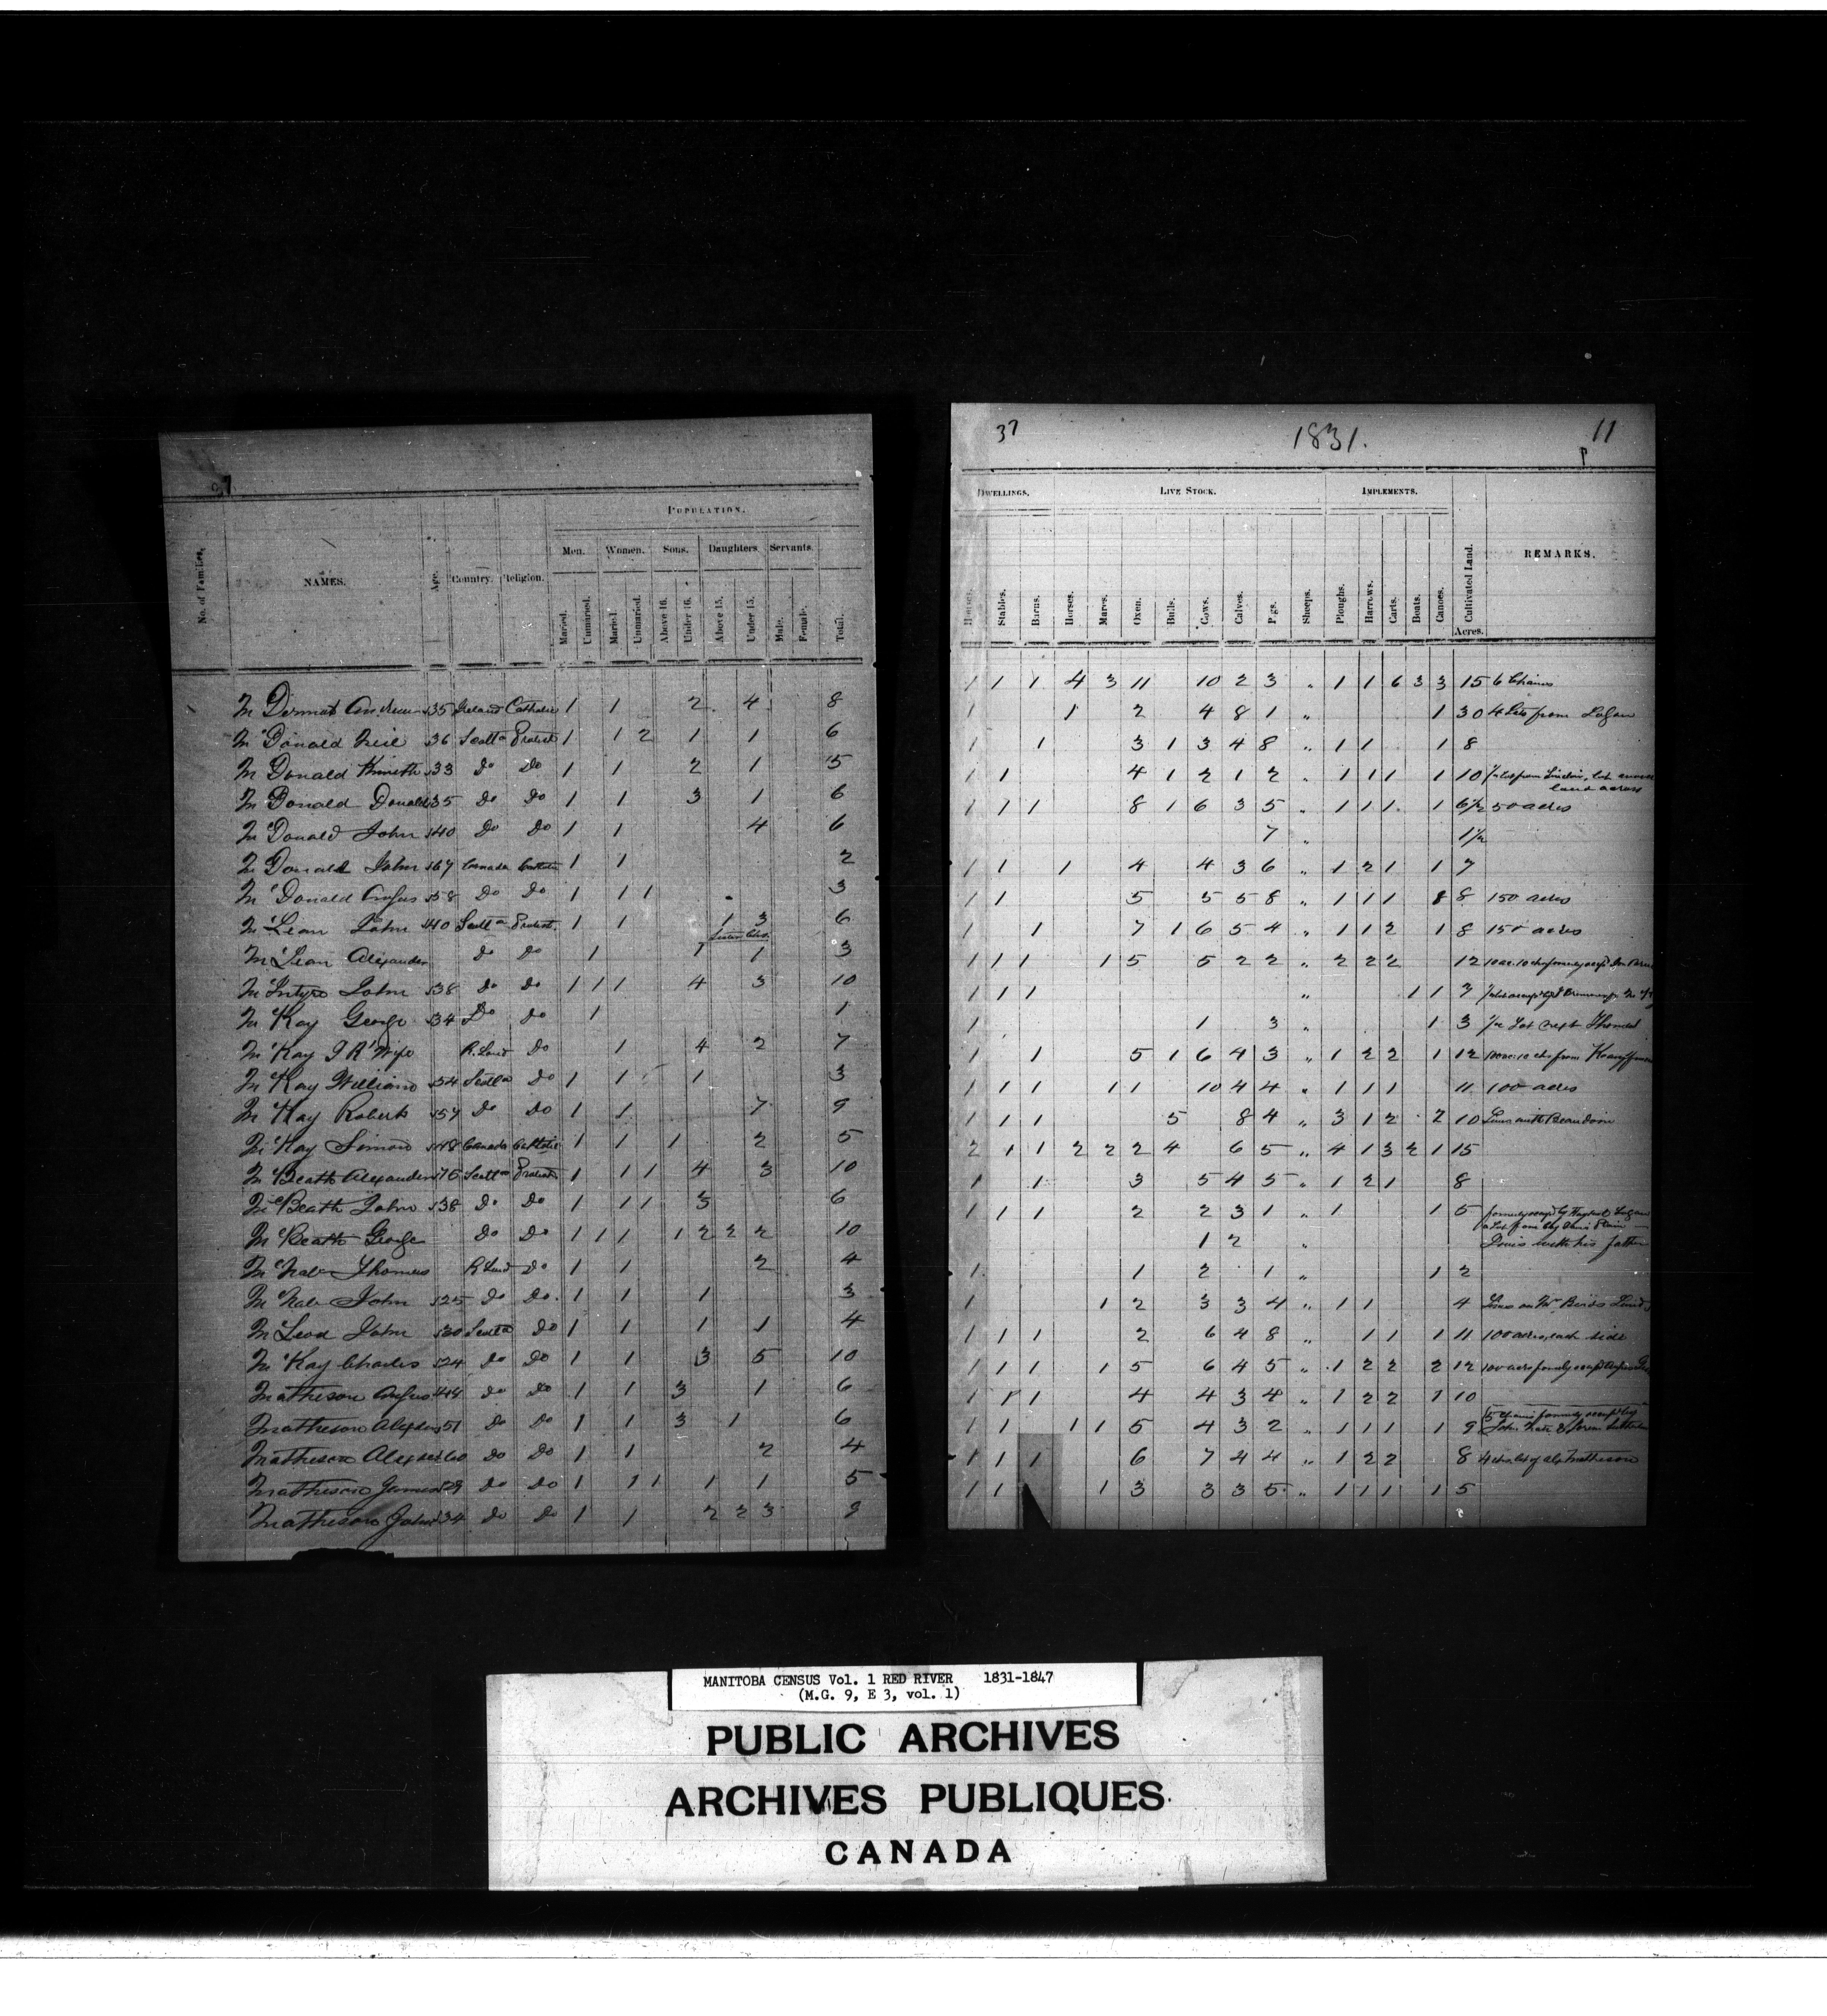 37
No. of Families.
NAMES.
Age.
Country.
Religion.
POPULATION.
Men. Women. Sons. Daughters. Servants.
Maried. Unmaried. Maried. Unmaried. Above 16. Under 16. Above 15. Under 15. Male. Female. Total.
McDermot Andrew 35 Ireland Catholic 1 1 2 4 8
McDonald Neil 36 Scotld Protest 1 1 2 1 1 6
McDonald Kenneth 33 Do Do 1 1 2 1 5
McDonald Donald 35 Do Do 1 1 3 1 6
McDonald John 40 Do Do 1 1 4 6
McDonald John 67 Canada Catholic 1 1 2
McDonald Angus 58 Do Do 1 1 1 3
McLean John 40 Scotld Protest. 1 1 1 3 6
McLean Alexander Do Do 1 1 1 3
McIntyre John 38 Do Do 1 1 1 4 3 10
McKay George 34 Do Do 1 1
McKay J R Wife R. Land Do 1 4 2 7
McKay William 54 Scotld Do 1 1 1 3
McKay Robert 57 Do Do 1 1 7 9
McKay Simon 48 Canada Catholic 1 1 1 2 5
McBeath Alexander 76 Scotld Protest 1 1 1 4 3 10
McBeath John 38 Do Do 1 1 1 3 6
McBeath George Do Do 1 1 1 1 2 2 2 10
McNab Thomas R Land Do 1 1 2 4
McNab John 25 Do Do. 1 1 1 3
McLeod John 30 Scotld Do 1 1 1 1 4
McKay Charles 24 Do Do 1 1 3 5 10
Matheson Angus 44 Do Do 1 1 3 1 6
Matheson Alexdr 51 Do Do 1 1 3 1 6
Matheson Alexdr 60 Do Do 1 1 2 4
Matheson James 29 Do Do 1 1 1 1 1 5
Matheson John 34 Do Do 1 1 2 2 3 9
37 1831. 11
DWELLINGS. LIVE STOCK. IMPLEMENTS.
Houses. Stables. Barns. Horses. Mares. Oxen. Bulls. Cows. Calves. Pigs. Sheeps. Ploughs. Harrows. Carts. Boats. Canoes. Cultivated Land. REMARKS.
Acres.
1 1 1 4 3 11 10 2 3 " 1 1 6 3 3 15 6 Chains
1 1 2 4 8 1 " 1 30 4 Lots from Logan
1 1 3 1 3 4 8 " 1 1 1 8
1 1 4 1 2 1 2 " 1 1 1 1 10 1/2 lot from Sinclair,
land across
1 1 1 8 1 6 3 5 " 1 1 1 1 6 1/2 50 acres
7 " 1 1/2
1 1 1 4 4 3 6 " 1 2 1 1 7
1 1 5 5 5 8 " 1 1 1 8 8 150 acres
1 1 7 1 6 5 4 " 1 1 2 1 8 150 acres
1 1 1 1 5 5 2 2 " 2 2 2 12
1 1 1 " 1 1 3
1 1 3 " 1 3 1/2 Lot Thomas
1 1 5 1 6 4 3 " 1 2 2 1 12 100 ac. 10 chs from
1 1 1 1 1 10 4 4 " 1 1 1 11 100 acres
1 1 1 5 8 4 " 3 1 2 2 10 Lives with Beaudoin
2 1 1 2 2 2 4 6 5 " 4 1 3 2 1 15
1 1 3 5 4 5 " 1 2 1 8
1 1 1 2 2 3 1 " 1 1 5 formerly occupd by
1 2 " Lives with his father
1 1 2 1 " 1 2
1 1 2 3 3 4 " 1 1 4 Lives on Mr Birds Land
1 1 1 2 6 4 8 " 1 1 1 11 100 acres, each side
1 1 1 1 5 6 4 5 " 1 2 2 2 12 100 acres formerly occupd
1 1 1 4 4 3 4 " 1 2 2 1 10
5 chains formerly occupd by
1 1 1 1 5 4 3 2 " 1 1 1 1 9
1 1 1 6 7 4 4 " 1 2 2 8 4 chs lot of Alexr Matheson
1 1 1 3 3 3 5 " 1 1 1 1 5
MANITOBA CENSUS Vol. 1 RED RIVER 1831-1847
(M.G. 9, E 3, vol. 1)
PUBLIC ARCHIVES
ARCHIVES PUBLIQUES
CANADA